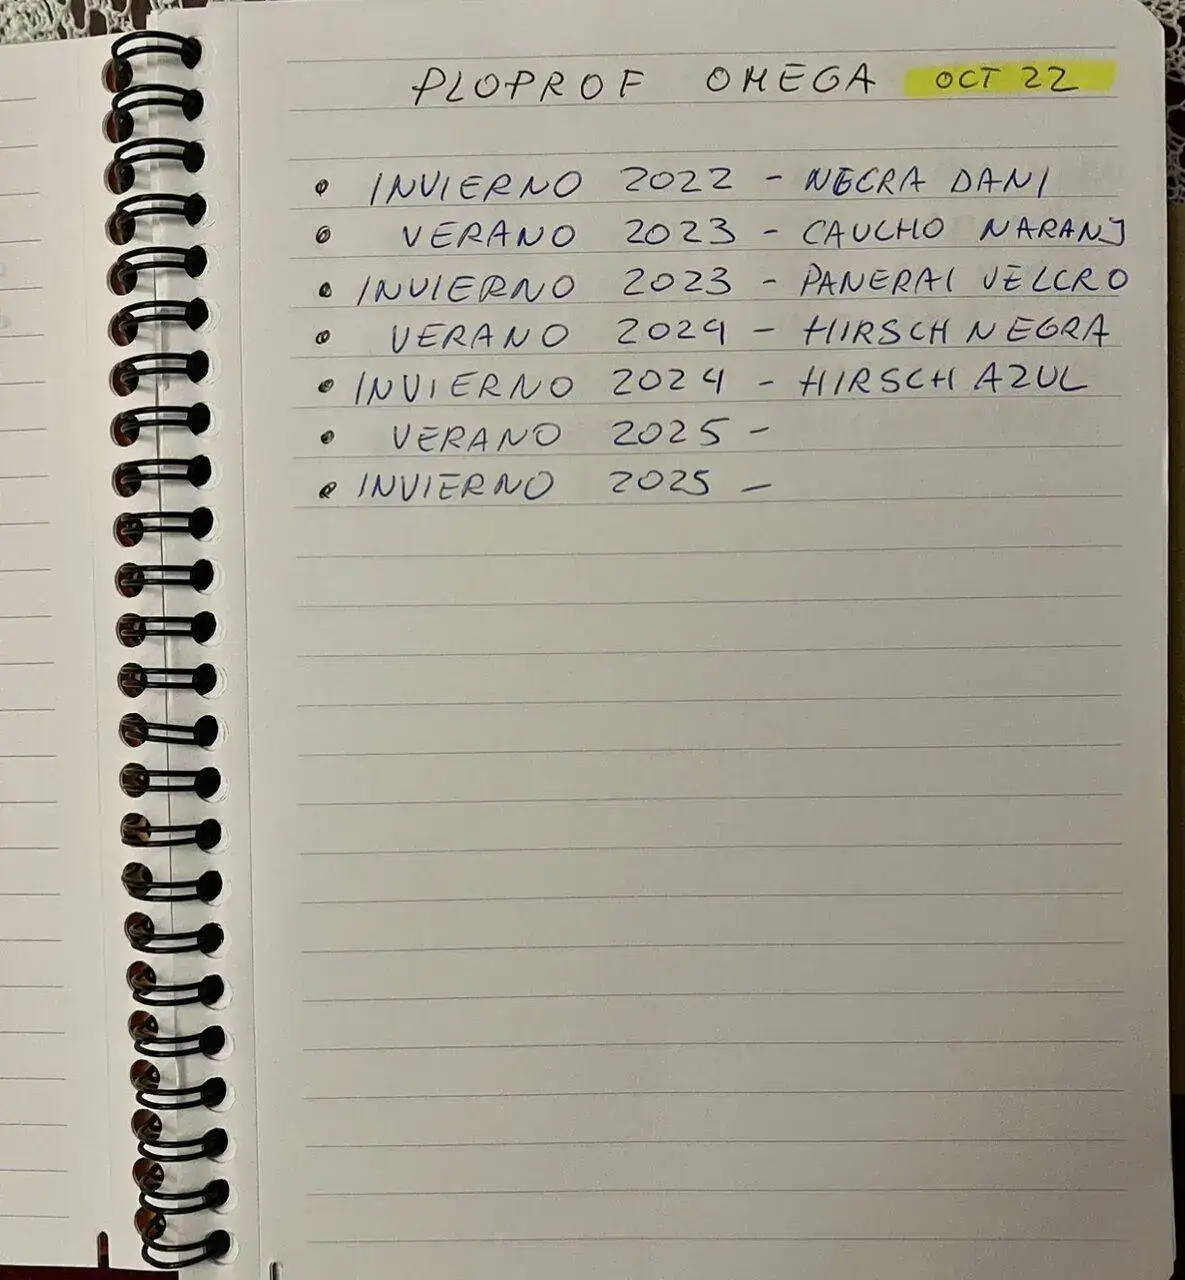 PLOPROF OMEGA OCT 22
• INVIERNO 2022 - NEGRA DANI
• VERANO 2023 - CAUCHO NARANJ
• INVIERNO 2023 - PANERAI VELCRO
• VERANO 2024 - HIRSCH NEGRA
• INVIERNO 2024 - HIRSCH AZUL
• VERANO 2025 -
• INVIERNO 2025 -